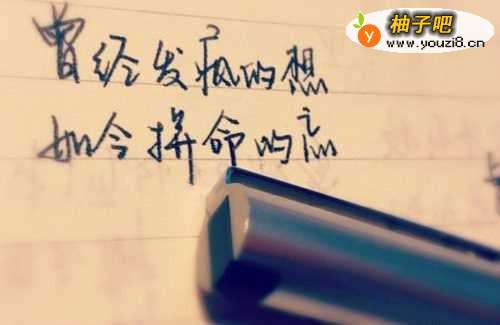 柚子吧
www.youzi8.cn
曾经发疯的想
如今拼命的忘